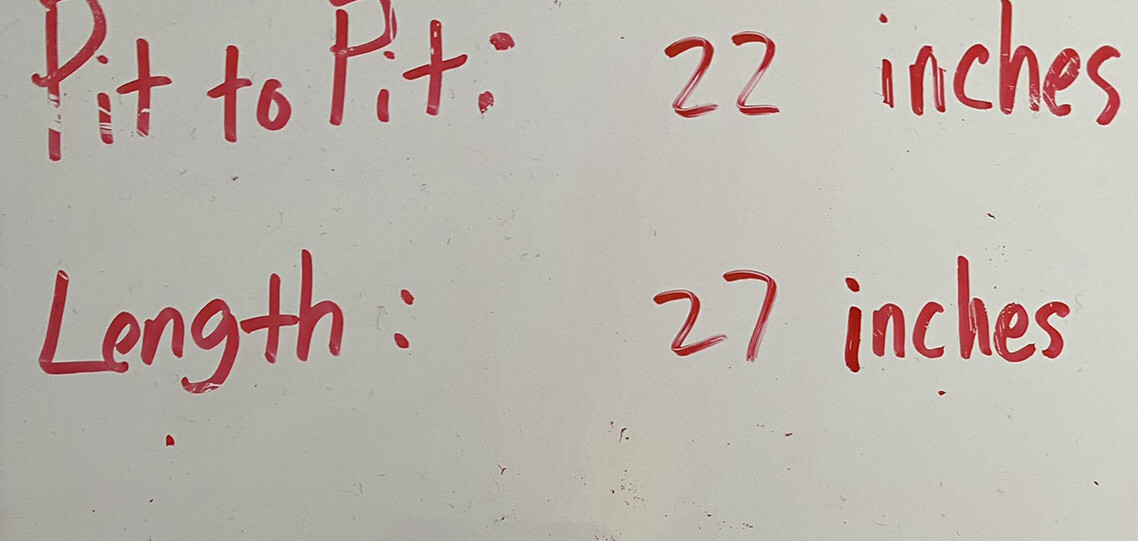 Pit to Pit: 22 inches
Length: 27 inches